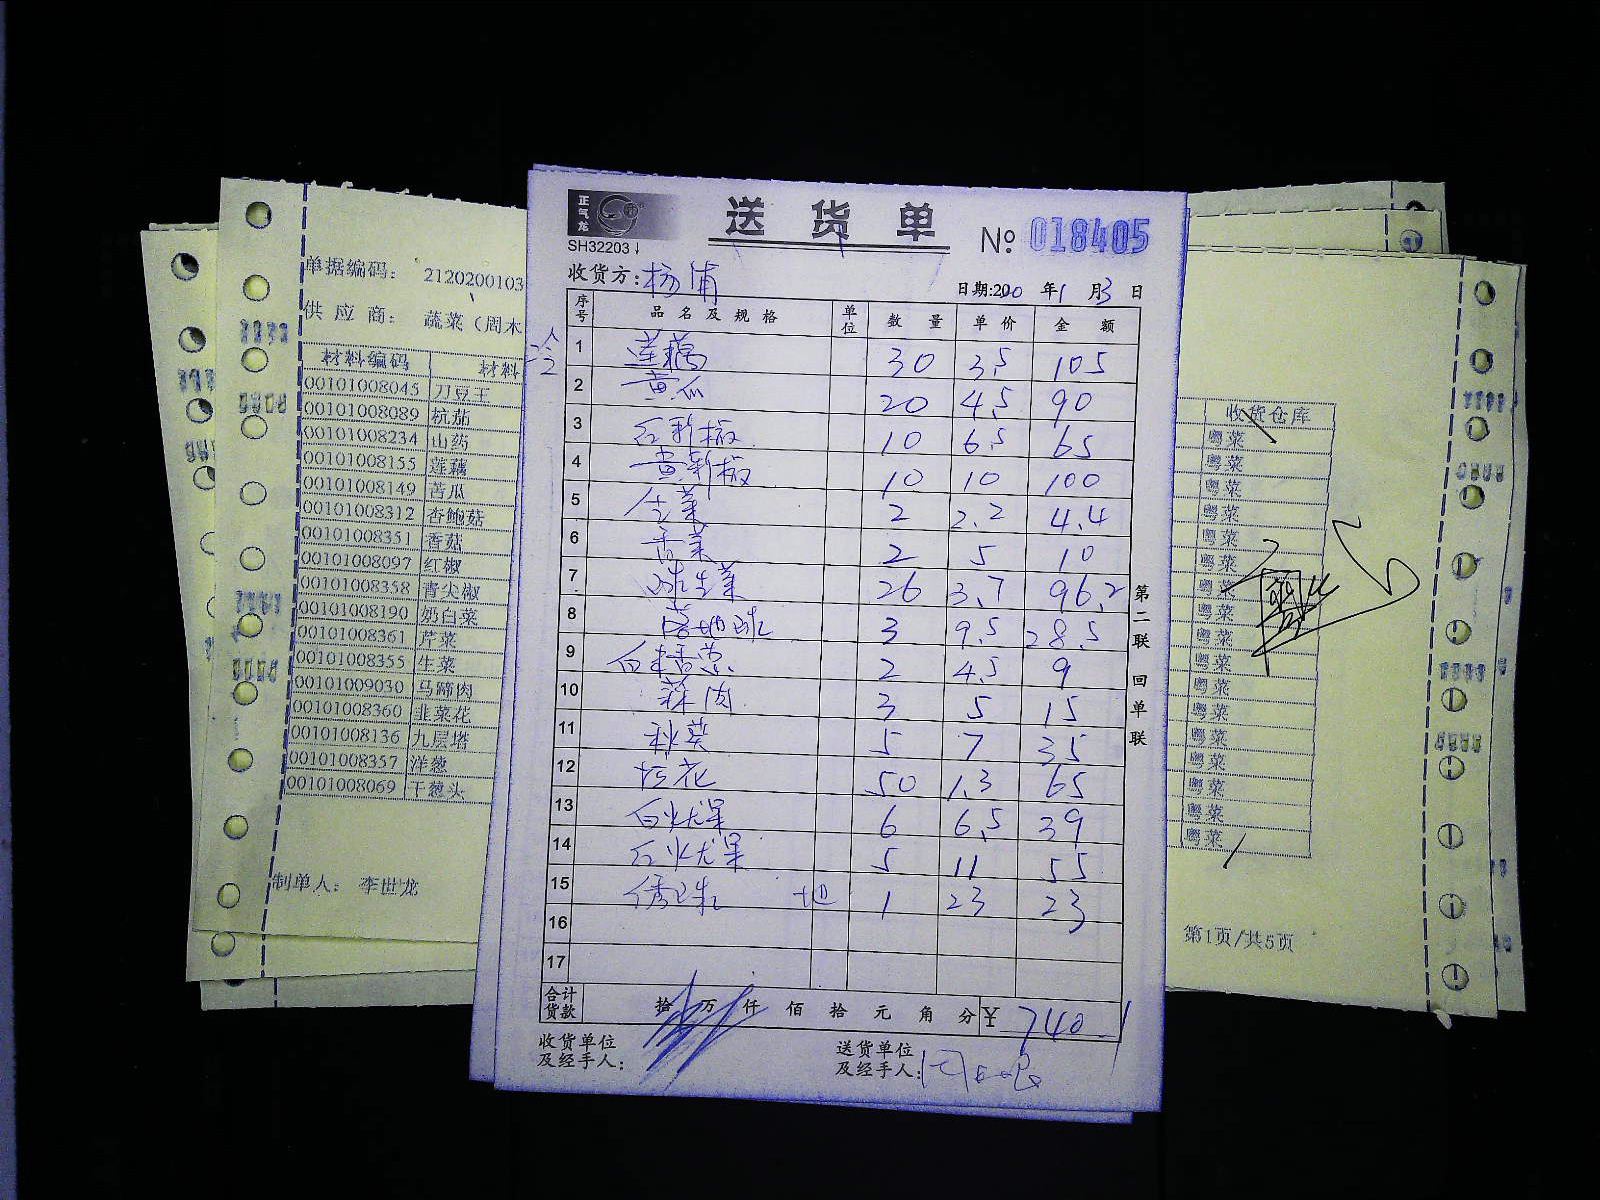 正气龙
SH32203
送货单
№ 018405
收货方:杨浦
日期:2020年1月3日
序号 品名及规格 单位 数量 单价 金额
1 莲藕 30 3.5 105
2 黄瓜 20 4.5 90
3 红彩椒 10 6.5 65
4 黄彩椒 10 10 100
5 生菜 2 2.2 4.4
6 香菜 2 5 10
7 球生菜 26 3.7 96.2
8 3 9.5 28.5
9 2 4.5 9
10 蒜肉 3 5 15
11 秋葵 5 7 35
12 50 1.3 65
13 白火龙果 6 6.5 39
14 红火龙果 5 11 55
15 1 23 23
16
17
合计货款 拾 万 仟 佰 拾 元 角 分 ¥ 740.1
收货单位及经手人:
送货单位及经手人:
第二联 回单联
单据编码: 2120200103
供应商: 蔬菜(周木
材料编码 材料
00101008045 刀豆王
00101008089 杭茄
00101008234 山药
00101008155 莲藕
00101008149 苦瓜
00101008312 杏鲍菇
00101008351 香菇
00101008097 红椒
00101008358 青尖椒
00101008190 奶白菜
00101008361 芹菜
00101008355 生菜
00101009030 马蹄肉
00101008360 韭菜花
00101008136 九层塔
00101008357 洋葱
00101008069 干葱头
制单人: 李世龙
收货仓库
粤菜
粤菜
粤菜
粤菜
粤菜
粤菜
粤菜
粤菜
粤菜
粤菜
粤菜
粤菜
粤菜
粤菜
粤菜
粤菜
粤菜
第1页/共5页